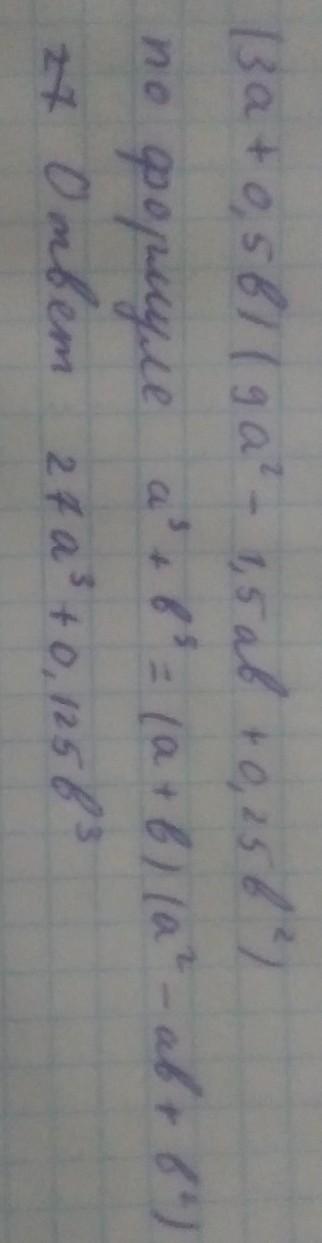 (3а + 0,5в) (9а² - 1,5ав + 0,25в²)
по формуле а³ + в³ = (а + в) (а² - ав + в²)
27 Ответ 27а³ + 0,125в³